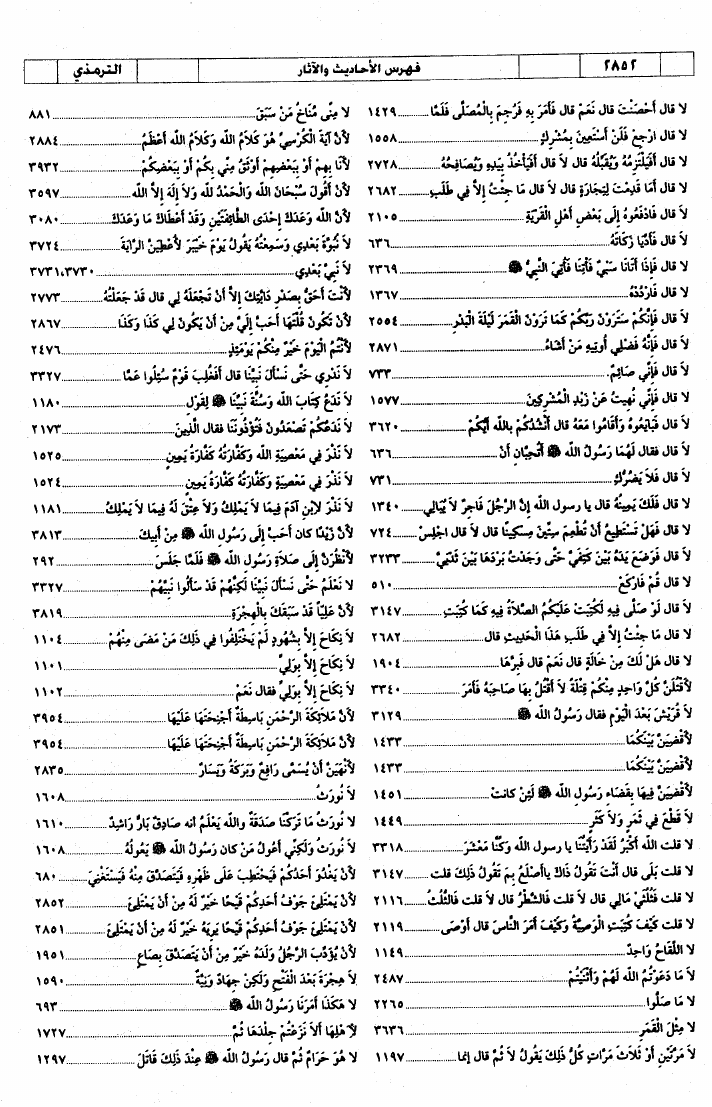 ٢٨٥٢
فهرس الأحاديث والآثار
الترمذي
لا قال أَحْصَنْتَ قال نَعَمْ قال فَأَمَرَ بِهِ فَرُجِمَ بِالْمُصَلَّى فَلَمَّا ١٤٢٩
لا قال ارْجِعْ فَلَنْ أَسْتَعِينَ بِمُشْرِكٍ ١٥٥٨
لا قال أَفَيَلْتَزِمُهُ وَيُقَبِّلُهُ قال لاَ قال أَفَيَأْخُذُ بِيَدِهِ وَيُصَافِحُهُ ٢٧٢٨
لاَ قال أَمَا قَدِمْتَ لِتِجَارَةٍ قال لاَ قال مَا جِئْتُ إِلاَّ فِي طَلَبِ ٢٦٨٢
لاَ قال فَادْفَعُوهُ إِلَى بَعْضِ أَهْلِ الْقَرْيَةِ ٢١٠٥
لاَ قال فَأَدِّيَا زَكَاتَهُ ٦٣٦
لا قال فَإِذَا أَتَانَا سَبْيٌ فَأْتِنَا فَأُتِيَ النَّبِيُّ ﷺ ٢٣٦٩
لا قال فَارْدُدْهُ ١٣٦٧
لاَ قال فَإِنَّكُمْ سَتَرَوْنَ رَبَّكُمْ كَمَا تَرَوْنَ الْقَمَرَ لَيْلَةَ الْبَدْرِ ٢٥٥٤
لاَ قال فَإِنَّهُ فَضْلِي أُوتِيهِ مَنْ أَشَاءُ ٢٨٧١
لاَ قال فَإِنِّي صَائِمٌ ٧٣٣
لا قال فَإِنِّي نُهِيتُ عَنْ زَبْدِ الْمُشْرِكِينَ ١٥٧٧
لا قال فَبَايَعُوهُ وَأَقَامُوا مَعَهُ قال أَنْشُدُكُمْ بالله أَيُّكُمْ ٣٦٢٠
لاَ قال فقال لَهُمَا رَسُولُ الله ﷺ أَتُحِبَّانِ أَنْ ٦٣٦
لاَ قال فَلاَ يَضُرُّكِ ٧٣١
لا قال فَلَكَ يَمِينُهُ قال يا رسول الله إِنَّ الرَّجُلَ فَاجِرٌ لاَ يُبَالِي ١٣٤٠
لا قال فَهَلْ تَسْتَطِيعُ أَنْ تُطْعِمَ سِتِّينَ مِسْكِينًا قال لاَ قال اجْلِسْ ٧٢٤
لاَ قال فَوَضَعَ يَدَهُ بَيْنَ كَتِفَيَّ حَتَّى وَجَدْتُ بَرْدَهَا بَيْنَ ثَدْيَيَّ ٣٢٣٣
لا قال قُمْ فَارْكَعْ ٥١٠
لاَ قال لَوْ صَلَّى فِيهِ لَكُتِبَتْ عَلَيْكُمُ الصَّلاَةُ فِيهِ كَمَا كُتِبَتِ ٣١٤٧
لا قال مَا جِئْتُ إِلاَّ فِي طَلَبِ هَذَا الْحَدِيثِ قال ٢٦٨٢
لا قال هَلْ لَكَ مِنْ خَالَةٍ قال نَعَمْ قال فَبِرَّهَا ١٩٠٤
لأَقْتُلَنَّ كُلَّ وَاحِدٍ مِنْكُمْ قِتْلَةً لاَ أَقْتُلُ بِهَا صَاحِبَهُ فَأَمَرَ ٣٣٤٠
لاَ قُرَيْشَ بَعْدَ الْيَوْمِ فقال رَسُولُ الله ﷺ ٣١٢٩
لأَقْضِيَنَّ بَيْنَكُمَا ١٤٣٣
لأَقْضِيَنَّ بَيْنَكُمَا ١٤٣٣
لأَقْضِيَنَّ فِيهَا بِقَضَاءِ رَسُولِ الله ﷺ لَئِنْ كانت ١٤٥١
لاَ قَطْعَ فِي ثَمَرٍ وَلاَ كَثَرٍ ١٤٤٩
لا قلت الله أَكْبَرُ لَقَدْ رَأَيْتُنَا يا رسول الله وَكُنَّا مَعْشَرَ ٣٣١٨
لاَ قلت بَلَى قال أَنْتَ تَقُولُ ذَاكَ ياأَصْلَعُ بِمَ تَقُولُ ذَلِكَ قلت ٣١٤٧
لا قلت فَثُلُثَيْ مَالِي قال لاَ قلت فَالشَّطْرُ قال لاَ قلت فَالثُّلُثُ ٢١١٦
لا قلت كَيْفَ كُتِبَتِ الْوَصِيَّةُ وَكَيْفَ أَمَرَ النَّاسَ قال أَوْصَى ٢١١٩
لا اللِّقَاحُ وَاحِدٌ ١١٤٩
لاَ مَا دَعَوْتُمُ الله لَهُمْ وَأَثْنَيْتُمْ ٢٤٨٧
لا مَا صَلَّوا ٢٢٦٥
لا مِثْلَ الْقَمَرِ ٣٦٣٦
لاَ مَرَّتَيْنِ أَوْ ثَلاَثَ مَرَّاتٍ كُلَّ ذَلِكَ يَقُولُ لاَ ثُمَّ قال إنما ١١٩٧
لا مِنًى مُنَاخُ مَنْ سَبَقَ ٨٨١
لأَنَّ آيَةَ الْكُرْسِيِّ هُوَ كَلاَمُ الله وَكَلاَمُ الله أَعْظَمُ ٢٨٨٤
لأَنَا بِهِمْ أَوْ بِبَعْضِهِمْ أَوْثَقُ مِنِّي بِكُمْ أَوْ بِبَعْضِكُمْ ٣٩٣٢
لأَنْ أَقُولَ سُبْحَانَ الله وَالْحَمْدُ لله وَلاَ إِلَهَ إِلاَّ الله ٣٥٩٧
لأَنَّ الله وَعَدَكَ إِحْدَى الطَّائِفَتَيْنِ وَقَدْ أَعْطَاكَ مَا وَعَدَكَ ٣٠٨٠
لاَ نُبُوَّةَ بَعْدِي وَسَمِعْتُهُ يَقُولُ يَوْمَ خَيْبَرَ لأُعْطِيَنَّ الرَّايَةَ ٣٧٢٤
لاَ نَبِيَّ بَعْدِي ٣٧٣٠، ٣٧٣١
لأَنْتَ أَحَقُّ بِصَدْرِ دَابَّتِكَ إِلاَّ أَنْ تَجْعَلَهُ لِي قال قَدْ جَعَلْتُهُ ٢٧٧٣
لأَنْ تَكُونَ قُلْتَهَا أَحَبُّ إِلَيَّ مِنْ أَنْ يَكُونَ لِي كَذَا وَكَذَا ٢٨٦٧
لأَنْتُمُ الْيَوْمَ خَيْرٌ مِنْكُمْ يَوْمَئِذٍ ٢٤٧٦
لاَ نَدْرِي حَتَّى نَسْأَلَ نَبِيَّنَا قال أَفَغُلِبَ قَوْمٌ سُئِلُوا عَمَّا ٣٣٢٧
لاَ نَدَعُ كِتَابَ الله وَسُنَّةَ نَبِيِّنَا ﷺ لِقَوْلِ ١١٨٠
لاَ نَدَعُكُمْ تَصْعَدُونَ فَتُؤْذُونَنَا فقال الَّذِينَ ٢١٧٣
لاَ نَذْرَ فِي مَعْصِيَةِ الله وَكَفَّارَتُهُ كَفَّارَةُ يَمِينٍ ١٥٢٥
لاَ نَذْرَ فِي مَعْصِيَةٍ وَكَفَّارَتُهُ كَفَّارَةُ يَمِينٍ ١٥٢٤
لاَ نَذْرَ لابْنِ آدَمَ فِيمَا لاَ يَمْلِكُ وَلاَ عِتْقَ لَهُ فِيمَا لاَ يَمْلِكُ ١١٨١
لأَنَّ زَيْدًا كان أَحَبَّ إِلَى رَسُولِ الله ﷺ مِنْ أَبِيكَ ٣٨١٣
لأَنْظُرَنَّ إِلَى صَلاَةِ رَسُولِ الله ﷺ فَلَمَّا جَلَسَ ٢٩٢
لا نَعْلَمُ حَتَّى نَسْأَلَ نَبِيَّنَا لَكِنَّهُمْ قَدْ سَأَلُوا نَبِيَّهُمْ ٣٣٢٧
لأَنَّ عَلِيًّا قَدْ سَبَقَكَ بِالْهِجْرَةِ ٣٨١٩
لاَ نِكَاحَ إِلاَّ بِشُهُودٍ لَمْ يَخْتَلِفُوا فِي ذَلِكَ مَنْ مَضَى مِنْهُمْ ١١٠٤
لاَ نِكَاحَ إِلاَّ بِوَلِيٍّ ١١٠١
لاَ نِكَاحَ إِلاَّ بِوَلِيٍّ فقال نَعَمْ ١١٠٢
لأَنَّ مَلاَئِكَةَ الرَّحْمَنِ بَاسِطَةٌ أَجْنِحَتَهَا عَلَيْهَا ٣٩٥٤
لأَنَّ مَلاَئِكَةَ الرَّحْمَنِ بَاسِطَةٌ أَجْنِحَتَهَا عَلَيْهَا ٣٩٥٤
لأَنْهَيَنَّ أَنْ يُسَمَّى رَافِعٌ وَبَرَكَةُ وَيَسَارٌ ٢٨٣٥
لاَ نُورَثُ ١٦٠٨
لا نُورَثُ مَا تَرَكْنَا صَدَقَةٌ والله يَعْلَمُ أنه صَادِقٌ بَارٌّ رَاشِدٌ ١٦١٠
لاَ نُورَثُ وَلَكِنِّي أَعُولُ مَنْ كان رَسُولُ الله ﷺ يَعُولُهُ ١٦٠٨
لأَنْ يَغْدُوَ أَحَدُكُمْ فَيَحْتَطِبَ عَلَى ظَهْرِهِ فَيَتَصَدَّقَ مِنْهُ فَيَسْتَغْنِيَ ٦٨٠
لأَنْ يَمْتَلِئَ جَوْفُ أَحَدِكُمْ قَيْحًا خَيْرٌ لَهُ مِنْ أَنْ يَمْتَلِئَ ٢٨٥٢
لأَنْ يَمْتَلِئَ جَوْفُ أَحَدِكُمْ قَيْحًا يَرِيهِ خَيْرٌ لَهُ مِنْ أَنْ يَمْتَلِئَ ٢٨٥١
لأَنْ يُؤَدِّبَ الرَّجُلُ وَلَدَهُ خَيْرٌ مِنْ أَنْ يَتَصَدَّقَ بِصَاعٍ ١٩٥١
لاَ هِجْرَةَ بَعْدَ الْفَتْحِ وَلَكِنْ جِهَادٌ وَنِيَّةٌ ١٥٩٠
لا هَكَذَا أَمَرَنَا رَسُولُ الله ﷺ ٦٩٣
لأَهْلِهَا أَلاَ نَزَعْتُمْ جِلْدَهَا ثُمَّ ١٧٢٧
لا هُوَ حَرَامٌ ثُمَّ قال رَسُولُ الله ﷺ عِنْدَ ذَلِكَ قَاتَلَ ١٢٩٧